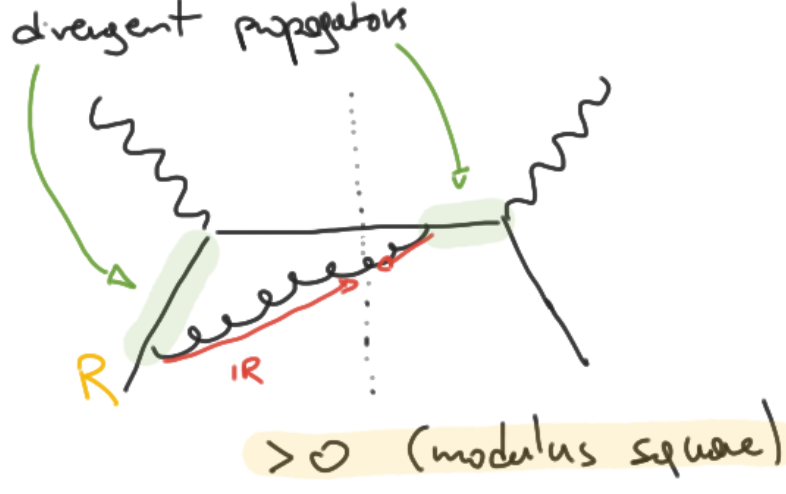 divergent propagators
R
IR
>0 (modulus square)